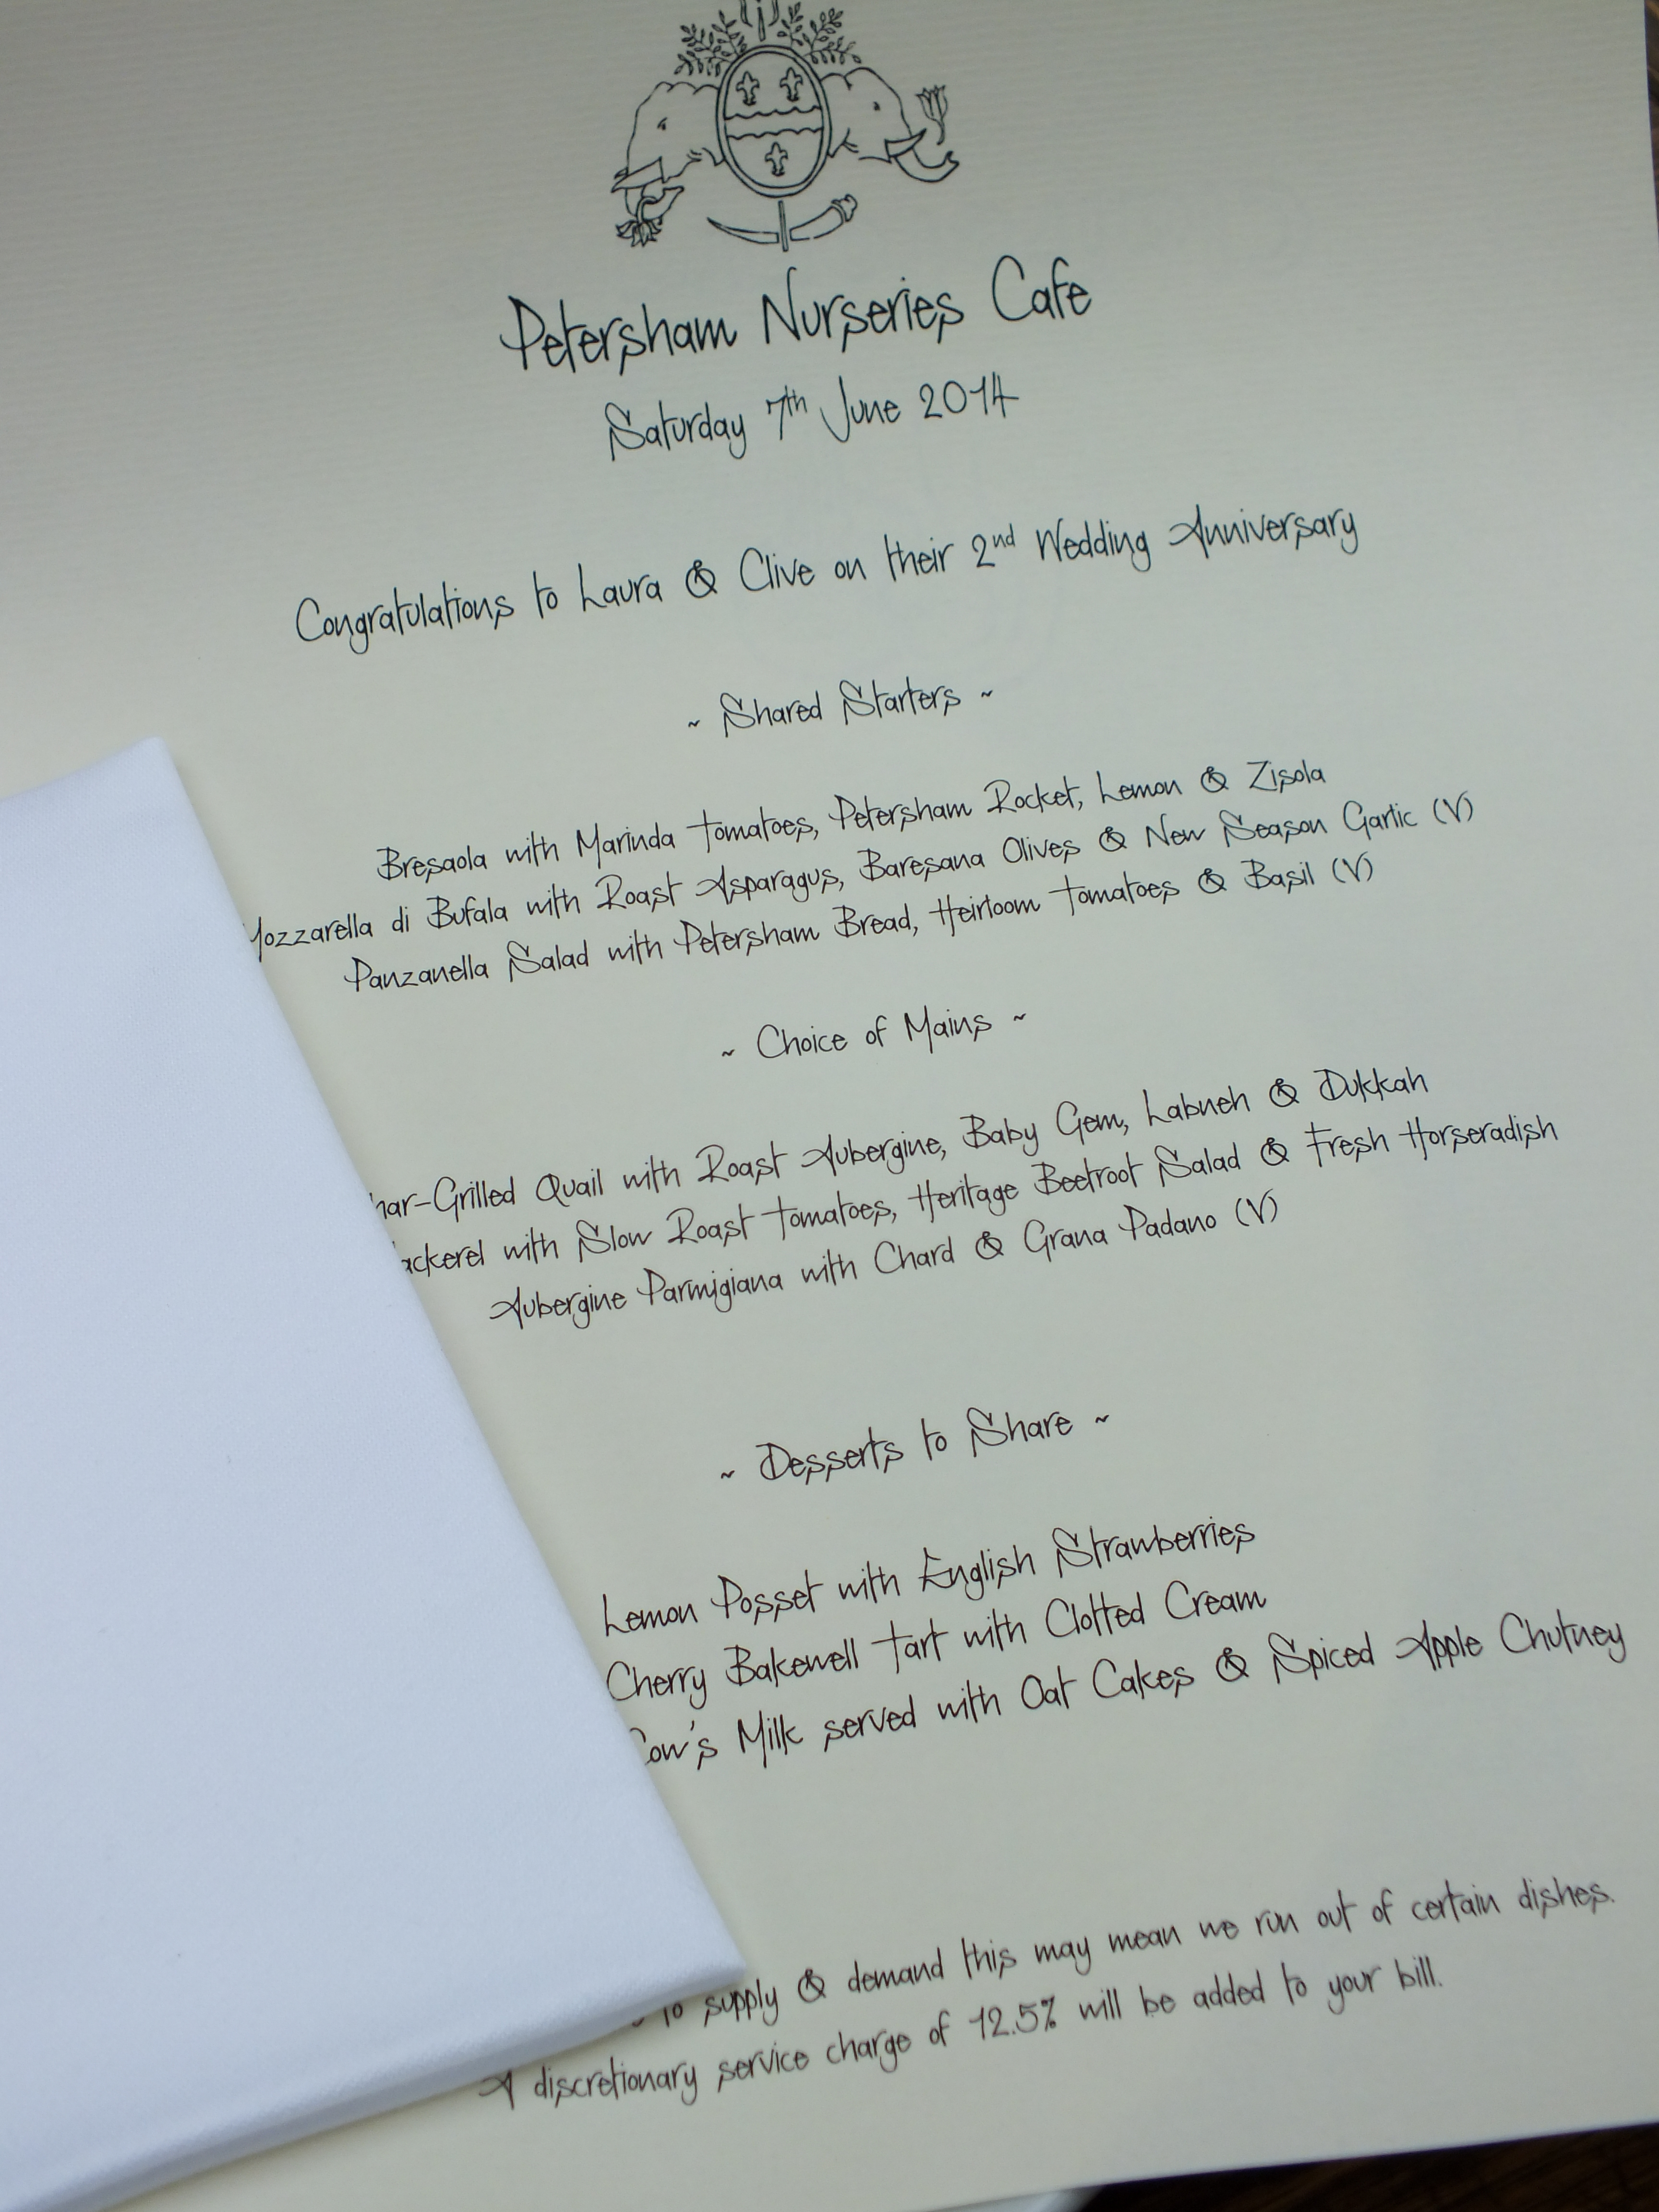 Petersham Nurseries Cafe
Saturday 7th June 2014
Congratulations to Laura & Clive on their 2nd Wedding Anniversary
~ Shared Starters ~
Bresaola with Marinda Tomatoes, Petersham Rocket, Lemon & Zisola
Mozzarella di Bufala with Roast Asparagus, Baresana Olives & New Season Garlic (V)
Panzanella Salad with Petersham Bread, Heirloom Tomatoes & Basil (V)
~ Choice of Mains ~
har-Grilled Quail with Roast Aubergine, Baby Gem, Labneh & Dukkah
ackerel with Slow Roast Tomatoes, Heritage Beetroot Salad & Fresh Horseradish
Aubergine Parmigiana with Chard & Grana Padano (V)
~ Desserts to Share ~
Lemon Posset with English Strawberries
Cherry Bakewell Tart with Clotted Cream
Cow's Milk served with Oat Cakes & Spiced Apple Chutney
to supply & demand this may mean we run out of certain dishes.
A discretionary service charge of 12.5% will be added to your bill.